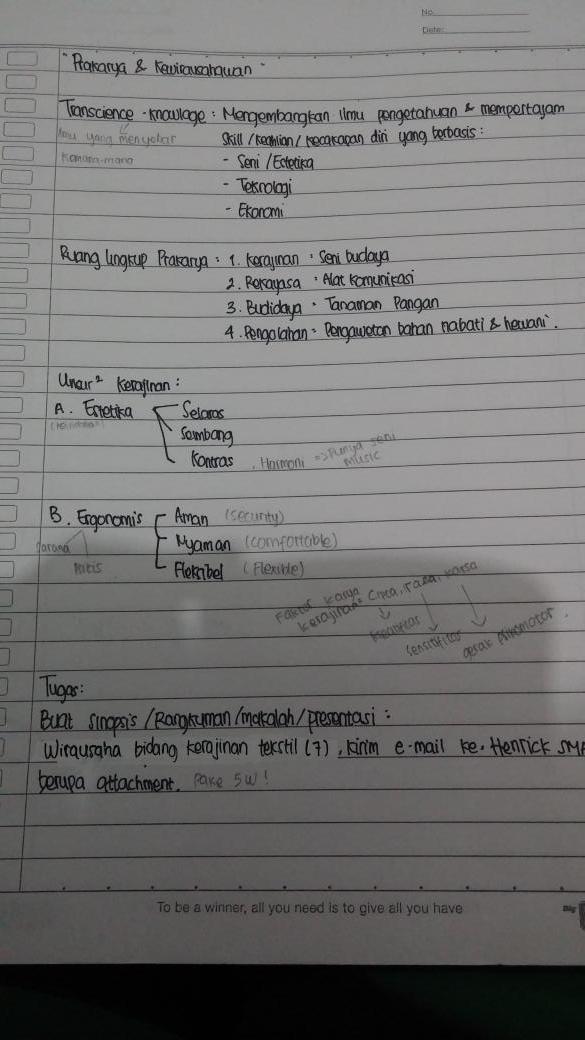 No.
Date:
"Prakarya & Kewirausahaan"
Transcience - knowlage : Mengembangkan Ilmu pengetahuan & mempertajam
Ilmu yang menyebar Skill / keahlian / kecakapan diri yang berbasis :
kemana-mana - Seni / Estetika
- Teknologi
- Ekonomi
Ruang lingkup Prakarya : 1. Kerajinan : Seni budaya
2. Rekayasa : Alat komunikasi
3. Budidaya : Tanaman Pangan
4. Pengolahan : Pengawetan bahan nabati & hewani.
Unsur² Kerajinan :
A. Estetika Selaras
(keindahan) Seimbang
Kontras , Harmoni => Punya seni
music
B. Ergonomis Aman (security)
Nyaman (comfortable)
Fleksibel (Flexible)
Faktor karya
kerajinan = Cipta, rasa, karsa
kreatifitas
sensitifitas
gerak psikomotor.
Tugas:
Buat sinopsis / Rangkuman / makalah / presentasi :
Wirausaha bidang kerajinan tekstil (7) , kirim e-mail ke. Henrick SMA
berupa attachment. Pake 5W !
To be a winner, all you need is to give all you have